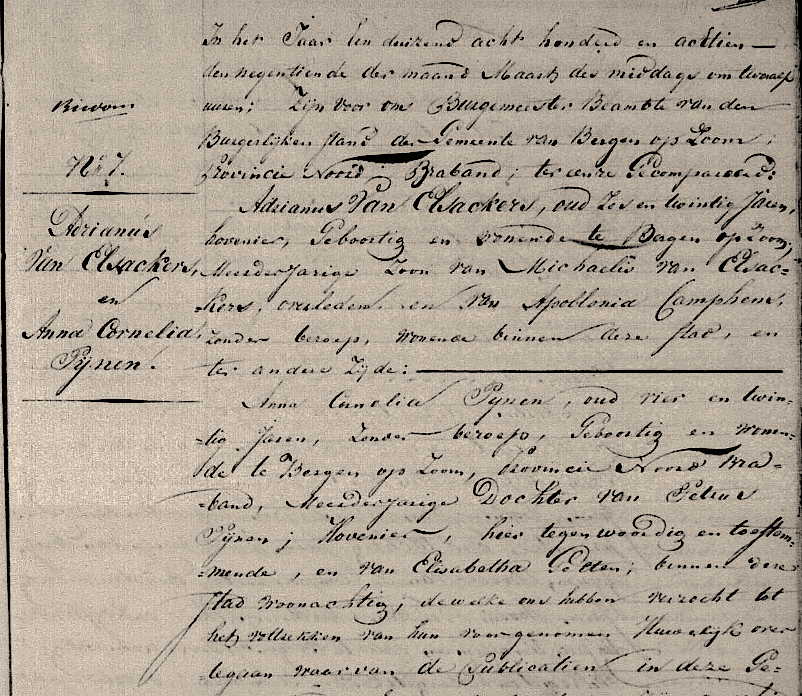 N.º 7.
Adrianus
Van Elsackers,
en
Anna Cornelia
Pijnen.
In het Jaar Een duizend acht honderd en achtien —
den negentiende der maand Maart des middags om twaalf
uuren; Zijn voor ons Burgemeester Beambte van den
Burgerlijken stand der Gemeente van Bergen op Zoom,
Provincie Noord Braband; ter eenre Gecompareerd:
Adrianus Van Elsackers, oud Zes en twintig Jaren,
hovenier, Geboortig en wonende te Bergen op Zoom,
Meerderjarige Zoon van Michaelis van Elsac-
-kers, overleden en van Apollonia Camphens,
zonder beroep, wonende binnen deze stad, en
ter andere Zijde:
Anna Cornelia Pijnen, oud vier en twin-
-tig Jaren, Zonder beroep, Geboortig en wonen-
de te Bergen op Zoom, Provincie Noord Bra-
-band, Meerderjarige Dochter van Petrus
Pijnen; Hovenier, hier tegenwoordig en toestem-
-mende, en van Elisabetha ; binnen deze
stad woonachtig; dewelke ons hebben verzocht tot
het voltrekken van hun voorgenomen Huwelijk over
tegaan waar van de Publicatien in deze Ge-